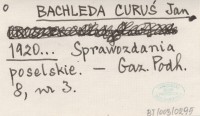 BACHLEDA CURUŚ Jan
1920... Sprawozdania
poselskie. — Gaz. Podh.
8, nr 3.